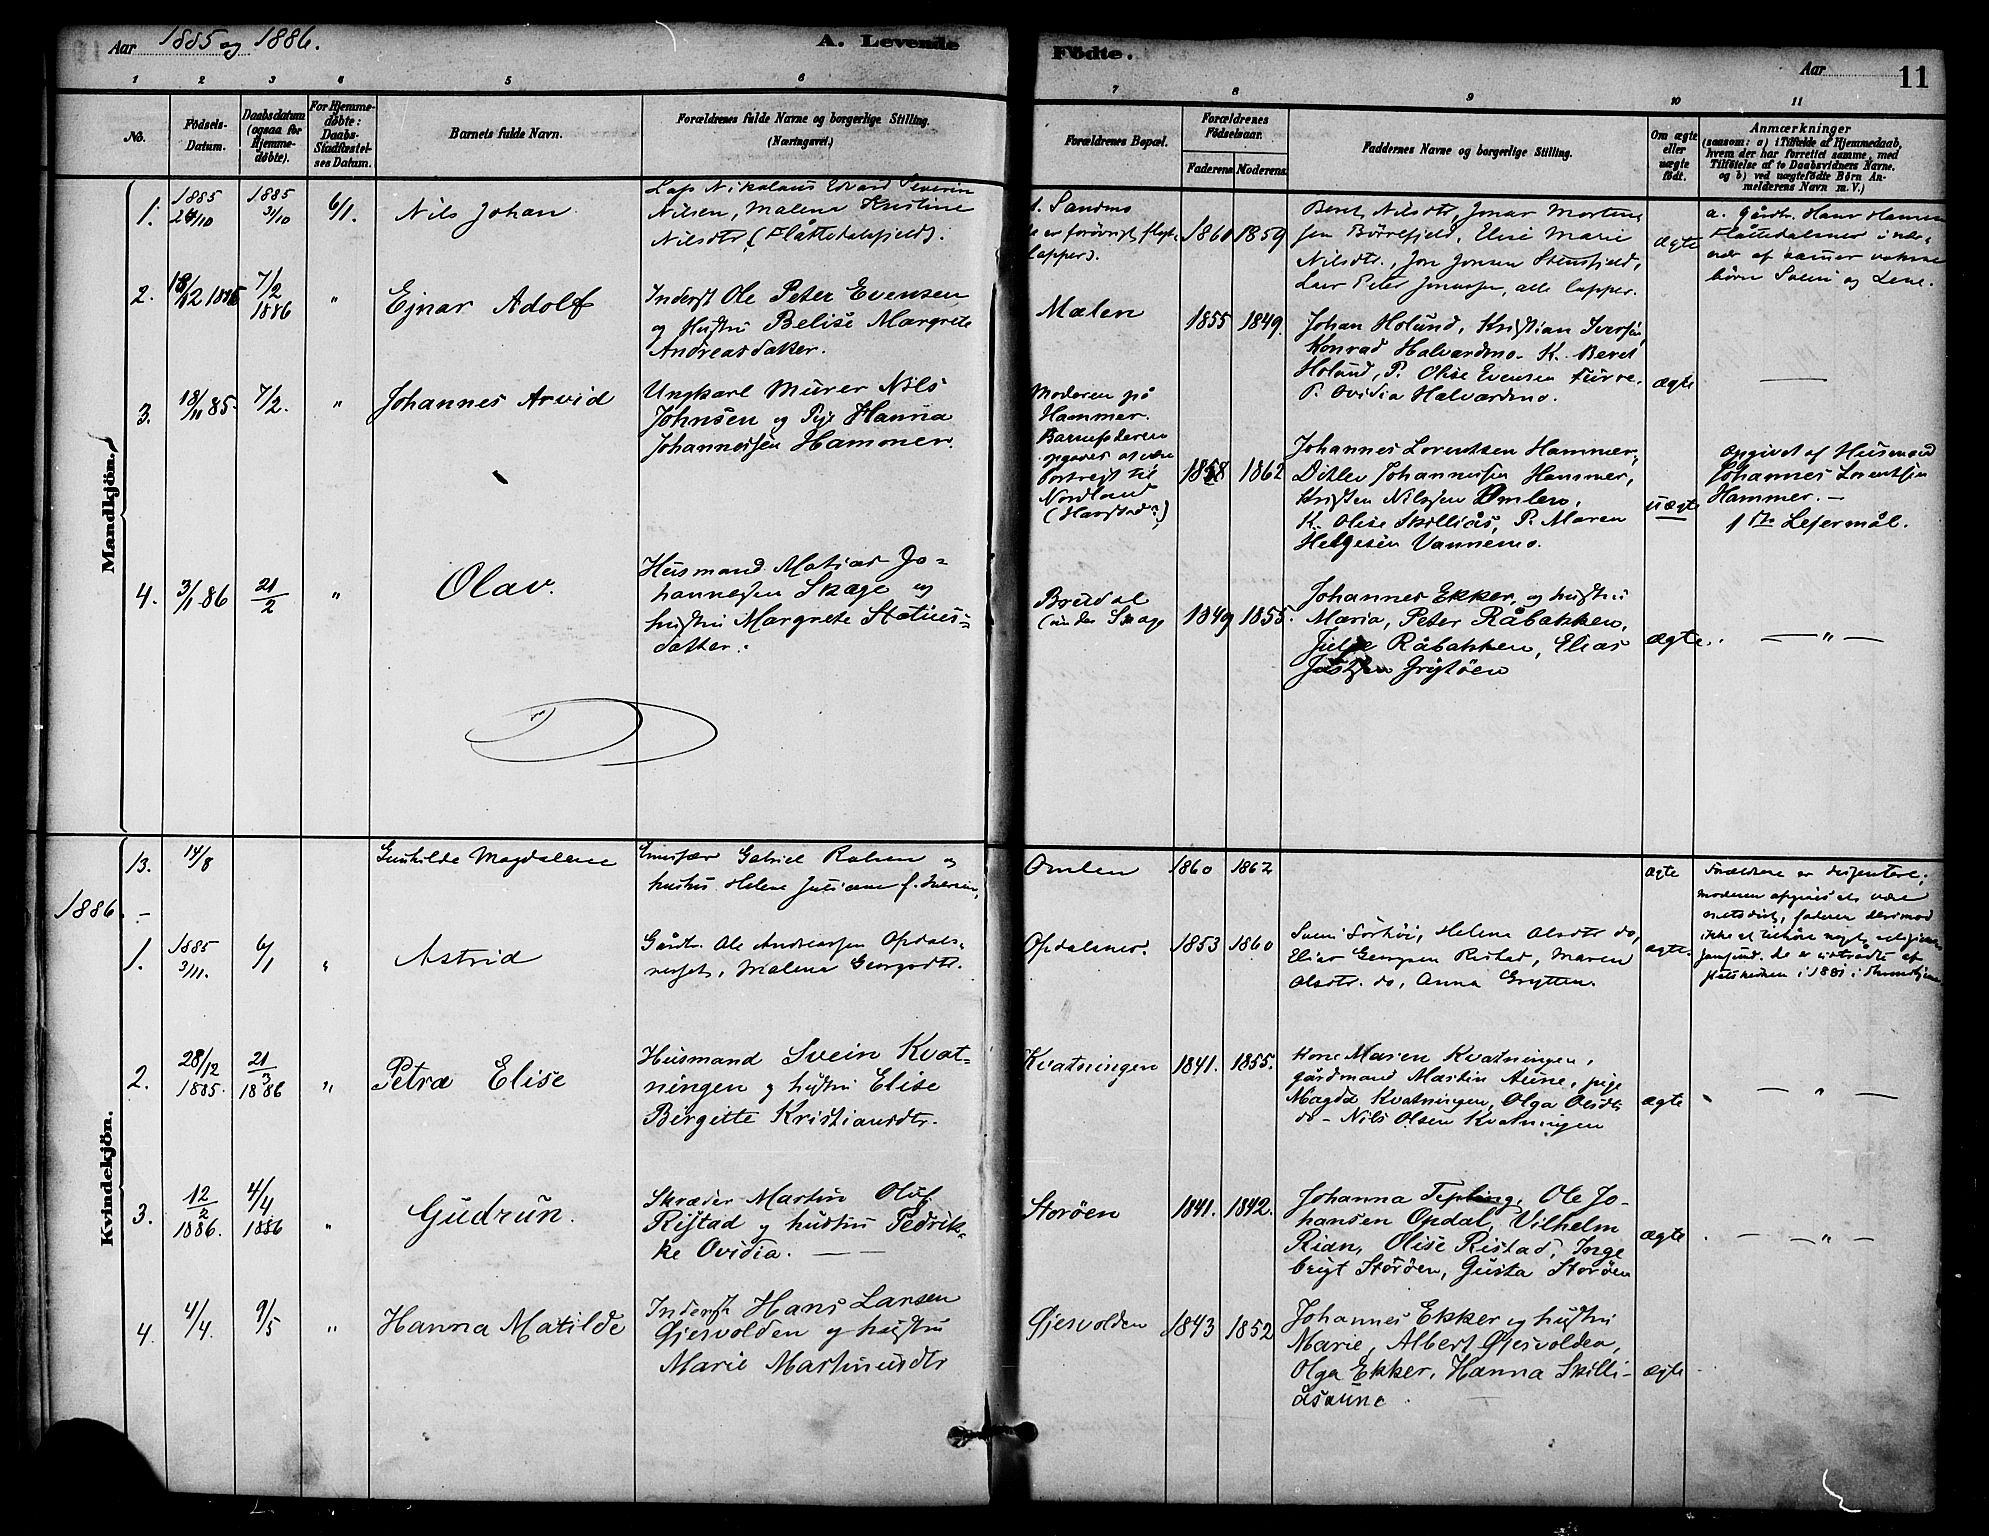 Aar 1885 og 1886.
A. Levende Födte.
Aar
11
1 2 3 4 5 6 7 8 9 10 11
No.
Födsels-Datum.
Daabsdatum (ogsaa for Hjemme-döbte).
For Hjemme-döbte: Daabs-Stadfæstel-ses Datum.
Barnets fulde Navn.
Forældrenes fulde Navne og borgerlige Stilling.
(Næringsvei.)
Forældrenes Bopæl.
Forældrenes Födselsaar.
Faderens Moderens
Faddernes Navne og borgerlige Stilling.
Om ægte eller uægte födt.
Anmærkninger
(saasom: a) i Tilfælde af Hjemmedaab,
hvem der har forrettet samme, med
Tilföielse af to Daabsvidners Navne.
og b) ved uægtefödte Börn An-
melderens Navn m. V.)
Mandkjön.
1. 1885 3/10 6/1. Nils Johan
1885
Lap Nikolaus Edvard Severin
Nilsen, Malena Kristine
Nilsdtr (Flåttedalsfjeld).
Sandmo
lapper).
1860 1859
Beret Nilsdtr, Jonar Morten-
sen Börrefjeld, Elen Marie
Nilsdtr., Jon Jonsen Stensfjeld,
Lars Peter Jonassen, alle lapper.
ægte
a. gårdbr. Hans Hansen
Flåttedalsmer i nær-
vær af samer voksne
börn Salin og Lene.
2. 18/12 1885 7/2 1886 " Ejnar Adolf
Inderst Ole Peter Evensen
og Hustru Belise Margrete
Andreasdatter.
Mælen
1855 1849.
Johan Holund, Kristian Iversen,
Konrad Halvardmo. K. Beret
Holund, P. Olise Evensen Furre.
P. Ovidia Halvardmo.
ægte —
3. 18/11 85. 7/2. " Johannes Arvid
Ungkarl Murer Nils
Johnsen og Pige Hanna
Johannessen Hammer.
Moderen på
Hammer.
Barnefaderen
opgaves at være
bortreist til
Nordland
(Harstad?)
1858 1862
Johannes Lorentsen Hammer,
Ditlev Johannessen Hammer,
Kristen Nilssen Omlen,
K. Olise Skilliås, P. Maren
Helgesen Vannemo.
uægte
Opgivet af Husmand
Johannes Lorentsen
Hammer. —
1ste Lejermål.
4. 3/1 86 21/2 " Olav.
Husmand Matias Jo-
hannessen Skage og
hustru Margrete Staliues-
datter.
Breidal
(under Skage
1849 1855.
Johannes Ekker, og hustru
Maria, Peter Råbakken,
Råbakken, Elias
Grytöen
ægte. — " —
Kvindekjön.
13. 14/8 Gunhilde Magdalene
Gabriel Rolsen og
hustru Helene Juliane f. Iversen,
Omlen 1860 1862 ægte
Forældrene er dissentere;
moderen opgives at være
metodist, faderen derimod
ikke at tilhøre noget religions-
samfund. De er udtrådte af
statskirken i 1881 i Throndhjem
1886. –
1. 1885 3/11. 6/1 " Astrid
Gårdbr. Ole Andreassen Opdals-
neset, Malena Georgsdtr.
Opdalsnes. 1853 1860
Svein Sörhöi, Helena Olsdtr do,
Elias Georgsen Ristad, Maren
Olsdtr. do, Anna Grytten.
ægte.
2. 28/12 1885. 21/3 1886 " Petra Elise
Husmand Svein Kvat-
ningen og hustru Elise
Birgitte Kristiansdtr.
Kvatningen 1841. 1855.
Kone Maren Kvatningen,
gårdmand Martin Aune, pige
Magda Kvatningen, Olga Olsdtr
do – Nils Olsen Kvatningen
ægte — " —
3. 12/2 1886. 4/4 1886 " Gudrun.
Skræder Martin Oluf
Ristad og hustru Fedrik-
ke Ovidia. — —
Storöen 1841. 1842.
Johanna Tepling, Ole Jo-
hansen Opdal, Vilhelm
Rian, Olise Ristad, Inge
brigt Storöen, Gusta Storöen
ægte . — — " —
4. 4/4. 9/5 " Hanna Matilde
Inderst Hans Larsen
Gjesvolden og hustru
Marie Martinusdtr
Gjesvolden 1843 1852
Johannes Ekker og hustru
Marie, Albert Gjesvolden,
Olga Ekker, Hanna Skilli-
åsaune.
ægte